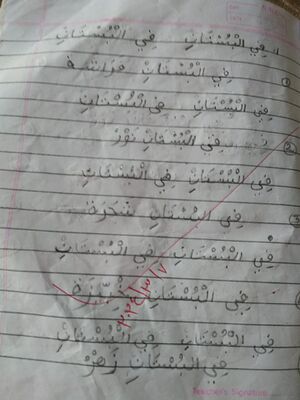 فِي الْبُسْتَانِ فِي الْبُسْتَانِ
فِي الْبُسْتَانِ فَرَاشَة
فِي الْبُسْتَانِ فِي الْبُسْتَانِ
فِي الْبُسْتَانِ
فِي الْبُسْتَانِ فِي الْبُسْتَانِ
فِي الْبُسْتَانِ شَجَرَة
فِي الْبُسْتَانِ فِي الْبُسْتَانِ
فِي الْبُسْتَانِ
فِي الْبُسْتَانِ فِي الْبُسْتَانِ
فِي الْبُسْتَانِ زَهْرٌ
Teacher's Signature